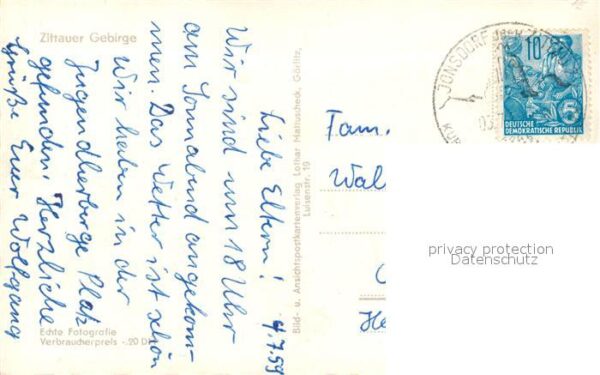 Zittauer Gebirge
4.7.59
Liebe Eltern!
Wir sind um 18 Uhr
am Sonnabend angekom-
men. Das Wetter ist schön
Wir haben in der
Jugendherberge Platz
gefunden! Herzliche
Grüße Euer Wolfgang
Echte Fotografie
Verbraucherpreis -.20 DM
Bild- u. Ansichtspostkartenverlag Lothar Mattuscheck, Görlitz,
Luisenstr. 19
JONSDORF
10
5
DEUTSCHE
DEMOKRATISCHE REPUBLIK
Fam.
Wal
He
privacy protection
Datenschutz